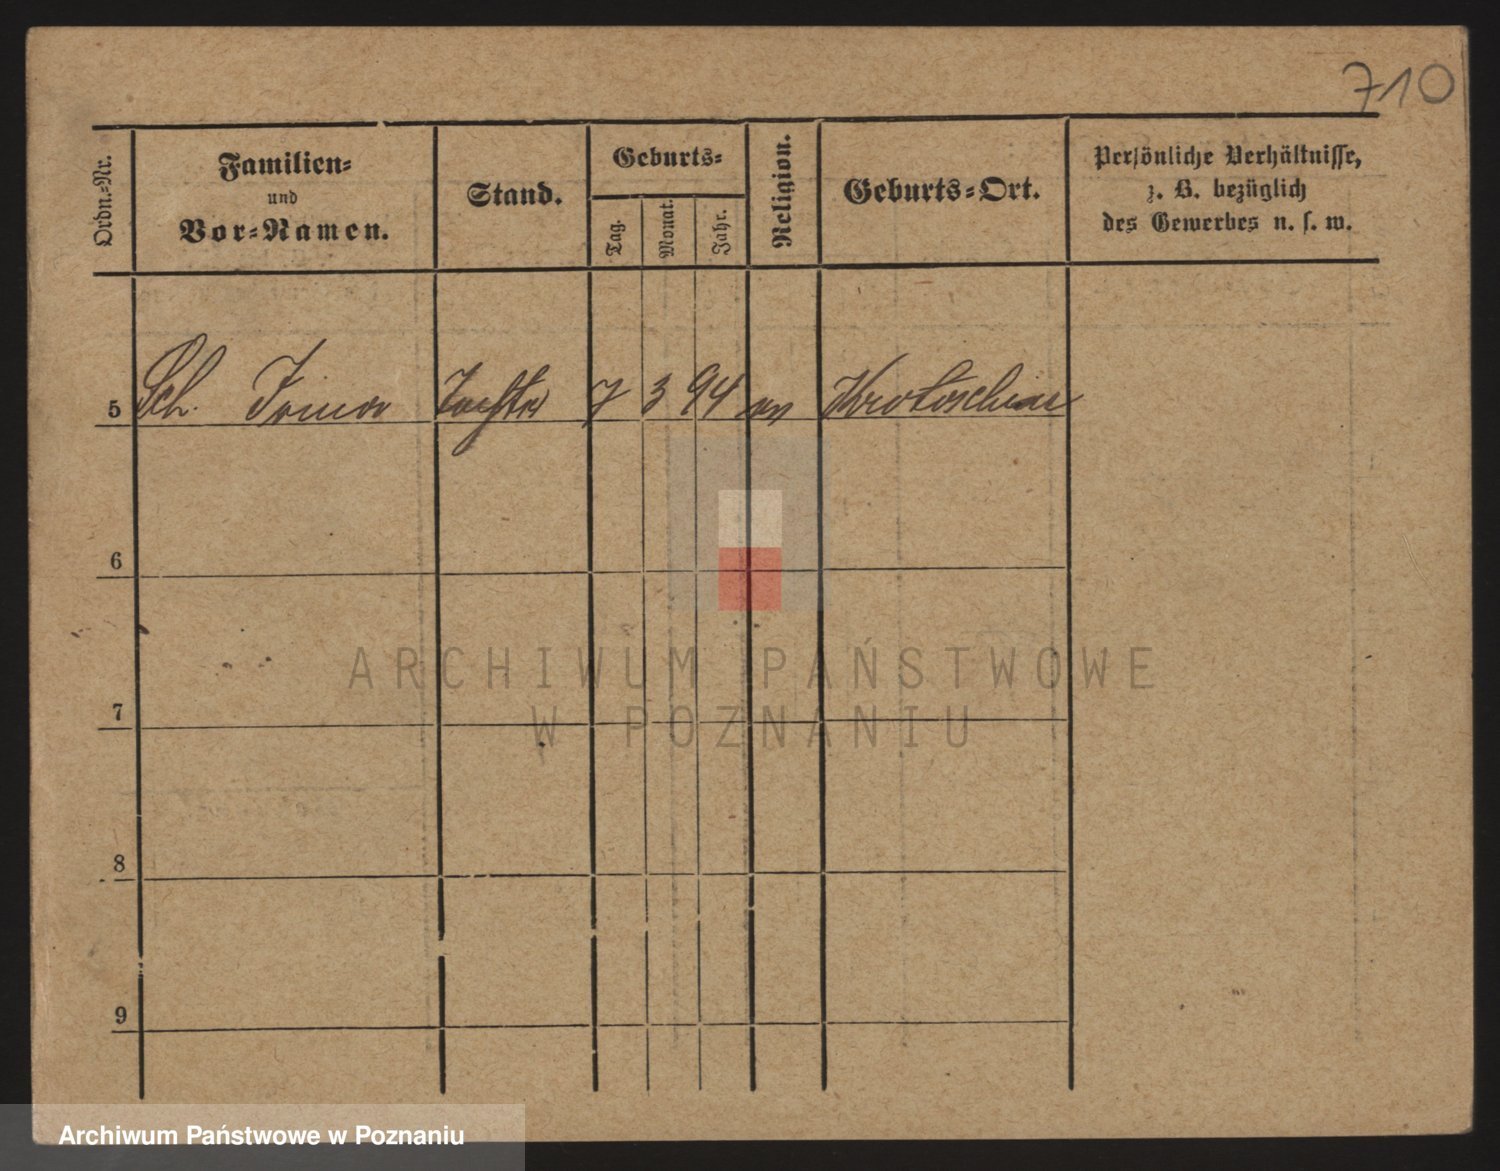 710
Ordn.-Nr.
Familien-
und
Vor-Namen.
Stand.
Geburts-
Tag.
Monat.
Jahr.
Religion.
Geburts-Ort.
Persönliche Verhältnisse,
z. B. bezüglich
des Gewerbes u. s. w.
5 Sch. Tochter 7 3 94 ev Krotoschin
6
ARCHIWUM PAŃSTWOWE
7
W POZNANIU
8
9
Archiwum Państwowe w Poznaniu